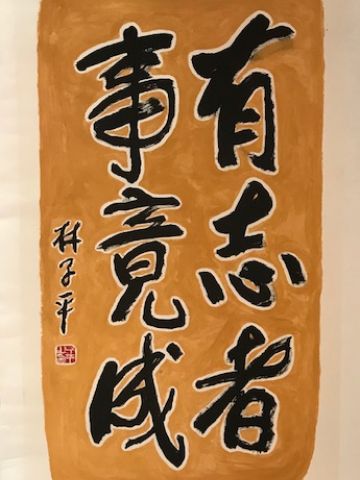 有志者
事竟成
林子平